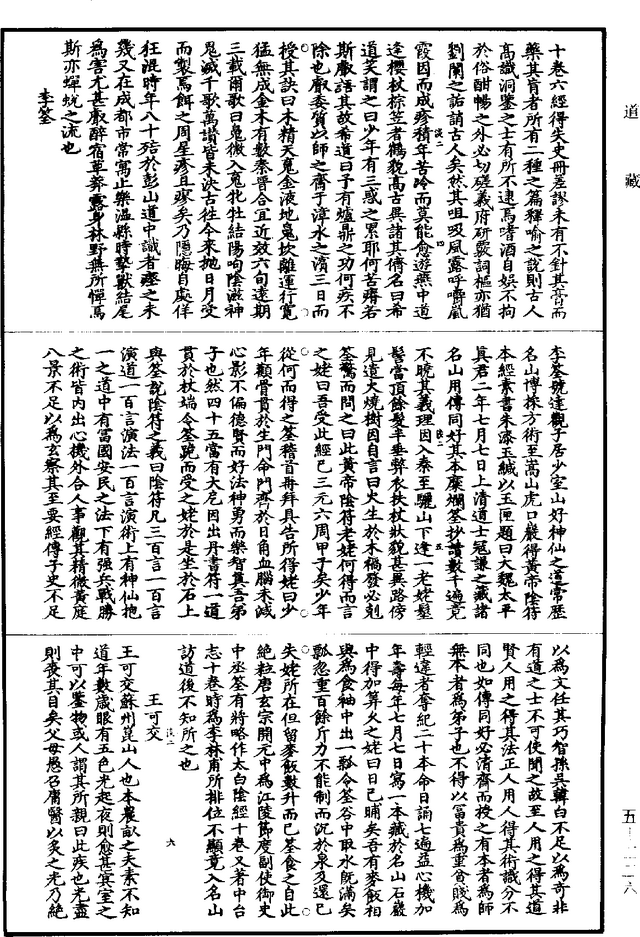 道藏
十卷六經得失史冊差謬未有不針其膏而
藥其肓者所有二種之篇釋喻之說則古人
高識洞鑒之士有所不逮焉嗜酒自娛不拘
於俗酣暢之外必切磋義府研覈詞樞亦猶
劉闌之詬誚古人矣然其咀吸風露呼嚼嵐
霞因而成疹積年苦冷而莫能愈遊燕中道
逢櫻杖棕笠者鶴貌高古異諸其儕名曰希
道笑謂之曰少年有三惑之累耶何苦瘠若
斯叡語其故希道曰子有爐鼎之功何疾不
除也叡委質以師之齋于漳水之濱三日而
授其訣曰木精天鬼金液地鬼坎離運行寬
猛無成金木有數秦晉合宜近效六旬遠期
三載爾歌曰鬼微入鬼牝牡結陽呴陰滋神
鬼滅千歌萬讚皆未決古往今來拋日月受
而製焉餌之周星疹且瘳矣乃隱晦自處佯
狂混時年八十殕於彭山道中識者瘞之未
幾又在成都市常寓止樂溫縣時摯獸結尾
為害尤甚叡醉宿草莽露身林野無所憚焉
斯亦蟬蛻之流也
李筌
李筌號達觀子居少室山好神仙之道常歷
名山博採方術至嵩山虎口巖得黃帝陰符
本經素書朱漆玉緘以玉匣題曰大魏太平
真君二年七月七日上清道士寇謙之藏諸
名山用傳同好其本糜爛筌抄讀數千遍竟
不曉其義理因入秦至驪山下逢一老姥髽
髻當頂餘髮半垂弊衣扶杖狀貌甚異路傍
見遺火燒樹因自言曰火生於木禍發必剋
筌驚而問之曰此黃帝陰符老姥何得而言
之姥曰吾受此經已三元六周甲子矣少年
從何而得之筌稽首再拜具告所得姥曰少
年顴骨貫於生門命門齊於日角血腦未減
心影不偏德賢而好法神勇而樂智真吾弟
子也然四十五當有大厄因出丹書符一道
貫於杖端令筌跪而受之姥於是坐於石上
與筌說陰符之義曰陰符凡三百言一百言
演道一百言演法一百言演術上有神仙抱
一之道中有富國安民之法下有強兵戰勝
之術皆內出心機外合人事觀其精微黃庭
八景不足以為玄察其至要經傳子史不足
以為文任其巧智孫吳韓白不足以為奇非
有道之士不可使聞之故至人用之得其道
賢人用之得其法正人用人得其術識分不
同也如傳同好必清齋而授之有本者為師
無本者為弟子也不得以富貴為重貧賤為
輕違者奪紀二十本命日誦七遍益心機加
年壽每年七月七日寫一本藏於名山石巖
中得加算久之姥曰日已晡矣吾有麥飯相
與為食袖中出一瓢令筌谷中取水既滿矣
瓢忽重百餘斤力不能制而沉於泉及還已
失姥所在但留麥飯數升而已筌食之自此
絕粒唐玄宗開元中為江陵節度副使御史
中丞筌有將略作太白陰經十卷又著中台
志十卷時為李林甫所排位不顯竟入名山
訪道後不知所之也
王可交
王可交蘇州崑山人也本農畝之夫素不知
道年數歲眼有五色光起夜則愈甚冥室之
中可以鑒物或人謂其所親曰此疾也光盡
則喪其目矣父母愚召庸醫以灸之光乃絕